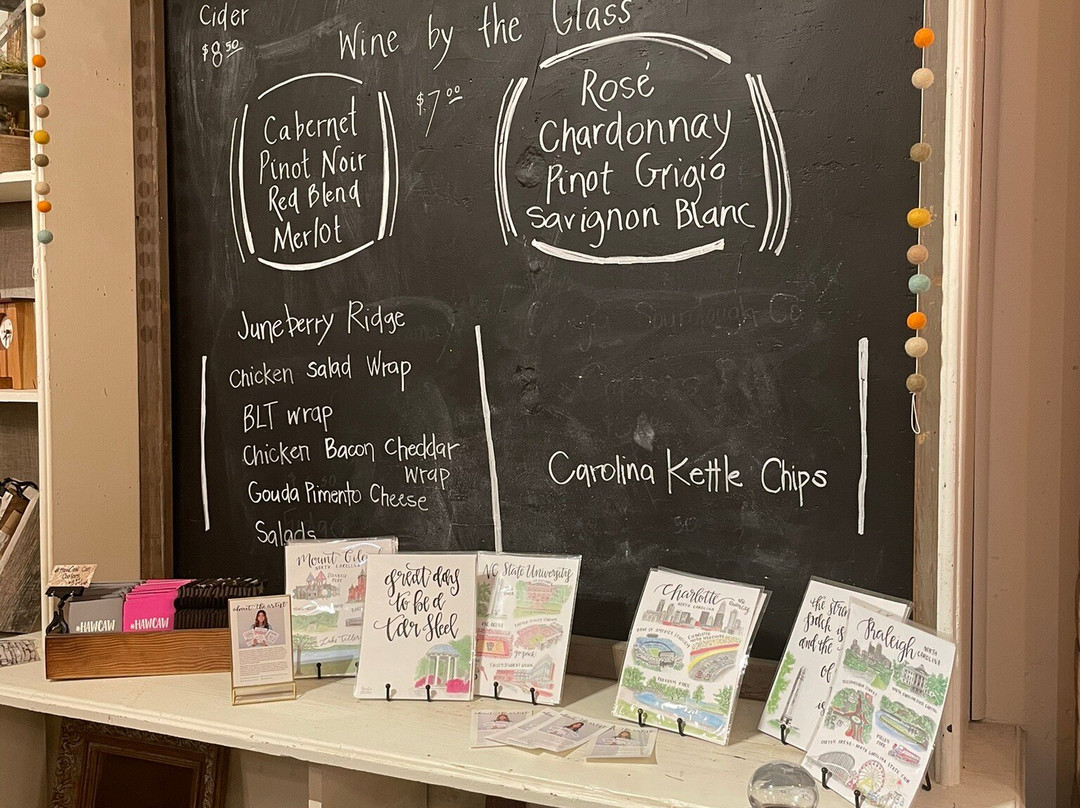 Cider
$8.50
Wine by the Glass
$7.00
Cabernet
Pinot Noir
Red Blend
Merlot
Rosé
Chardonnay
Pinot Grigio
Savignon Blanc
Juneberry Ridge
Chicken salad Wrap
BLT wrap
Chicken Bacon Cheddar
wrap
Gouda Pimento Cheese
Salads
Carolina Kettle Chips
#HAWCAW
#HAWCAW
about the artist
Mount
NORTH CAROLINA
great day
to be a
tar heel
NC State University
Charlotte
NORTH CAROLINA
the
and the
of
Raleigh
NORTH
CAROLINA